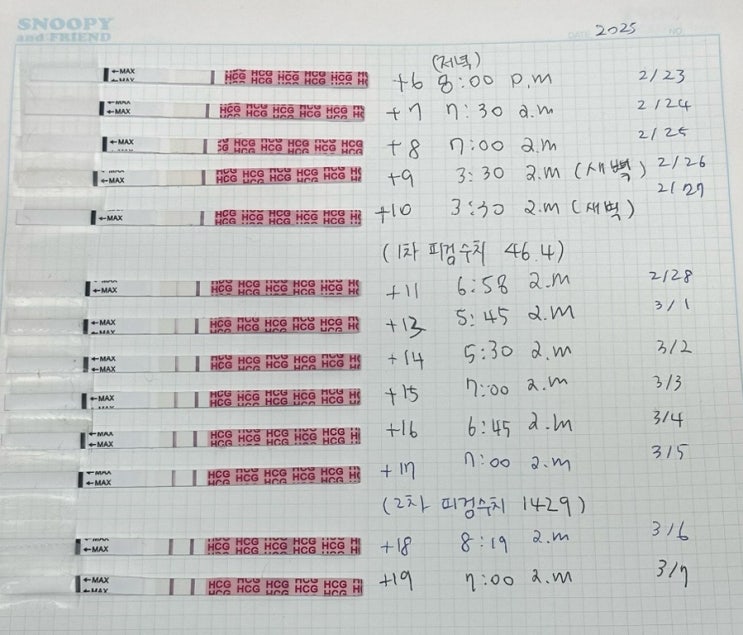 SNOOPY
and FRIEND
DATE 2025 NO
(저녁)
←MAX HCG HCG HCG HCG HCG +6 8:00 p.m 2/23
←MAX HCG HCG HCG HCG HCG +7 7:30 a.m 2/24
←MAX HCG HCG HCG HCG HCG +8 7:00 a.m 2/25
←MAX HCG HCG HCG HCG HCG +9 3:30 a.m (새벽) 2/26
←MAX HCG HCG HCG HCG HCG +10 3:30 a.m (새벽) 2/27
(1차 피검수치 46.4)
←MAX HCG HCG HCG HCG HCG +11 6:58 a.m 2/28
←MAX HCG HCG HCG HCG HCG +13 5:45 a.m 3/1
←MAX HCG HCG HCG HCG HCG +14 5:30 a.m 3/2
←MAX HCG HCG HCG HCG HCG +15 7:00 a.m 3/3
←MAX HCG HCG HCG HCG HCG +16 6:45 a.m 3/4
←MAX HCG HCG HCG HCG HCG +17 7:00 a.m 3/5
(2차 피검수치 1429)
←MAX HCG HCG HCG HCG HCG +18 8:19 a.m 3/6
←MAX HCG HCG HCG HCG HCG +19 7:00 a.m 3/7